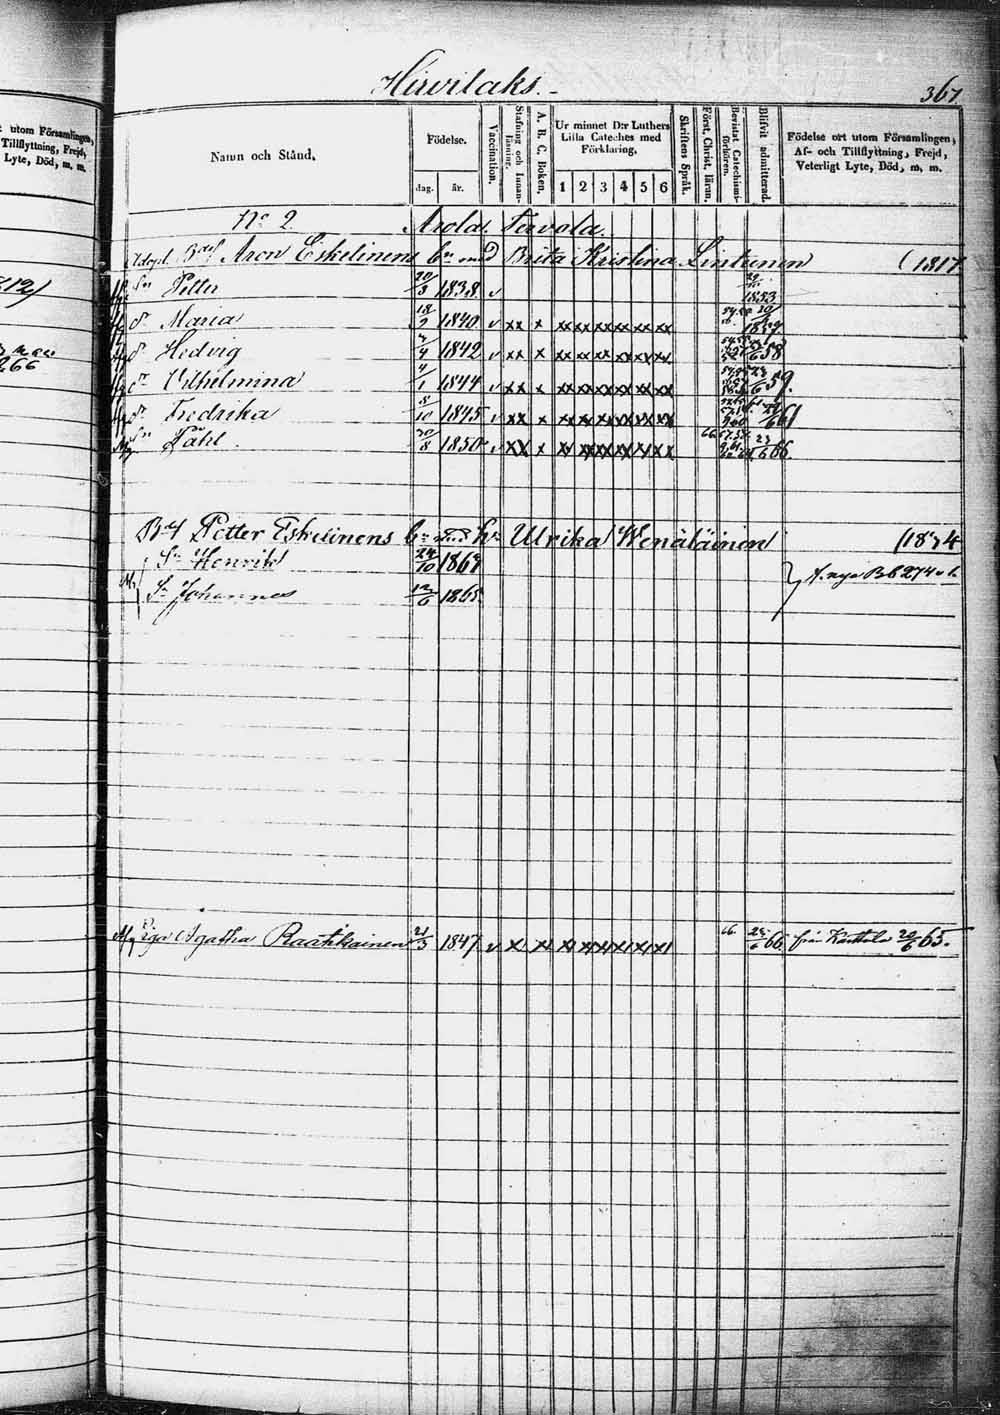 t utom Församlingen,
Tillflyttning, Frejd,
Lyte, Död, m. m.
266
Hirvilaks.
367.
Namn och Stånd.
Födelse.
dag. år.
Vaccination.
Stafning och Innanläsning.
A. B. C. Boken.
Ur minnet D:r Luthers Lilla Cateches med Förklaring.
1 2 3 4 5 6
Skriftens Språk.
Först. Christ. läran.
Bevistat Catechismiförhören.
Blifvit admitterad.
Födelse ort utom Församlingen, Af- och Tillflyttning, Frejd, Veterligt Lyte, Död, m. m.
No 2. Arola Tervola.
Aron Eskelinens Brita Kristina Lintunen (1817
Sn Petter 20/3 1838. v 1853
Dr Maria 1840 v xx x xx xx xx xx xx xx
Dr Hedvig 1842 v xx x xx xx xx xx xx xx 58
Dr Vilhelmina 4/1 1844 v xx x xx xx xx xx xx xx 59.
Dr Fredrika 8/10 1845 v xx x xx xx xx xx xx xx 61
Sn Påhl. 30/8 1850 v xx x xx xx xx xx xx xx 66. 23/6 66
Petter Eskelinens Ulrika Wenäläinen (1834
Sn Henrik 24/10 1863
Sn Johannes 12/6 1865.
A. nya Bb 274
Agatha Raatikainen 21/3 1847 v x xx xx xx xx xx xx xx 66. 23/6 66 från Karttula 20/6 65.